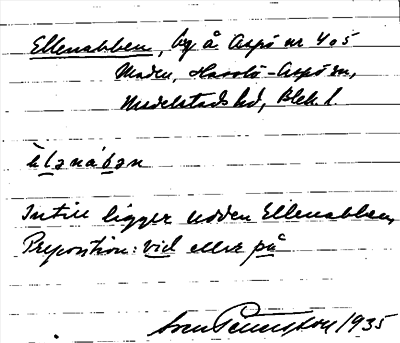 Ellenabben, by å Aspö nr 4 o 5
Maden, Hasslö-Aspö sn,
Medelstads hd, Blek. l.
èlənábən
Intill ligger udden Ellenabben,
Preposition: vid eller på
Sven Benngtson 1935